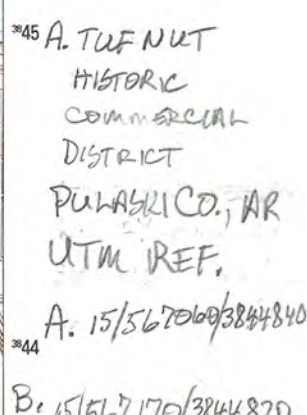 ³⁸45 A. TUF NUT
HISTORIC
COMMERCIAL
DISTRICT
PULASKI CO., AR
UTM REF.
A. 15/567060/3844840
³⁸44
B. 15/567170/3844820